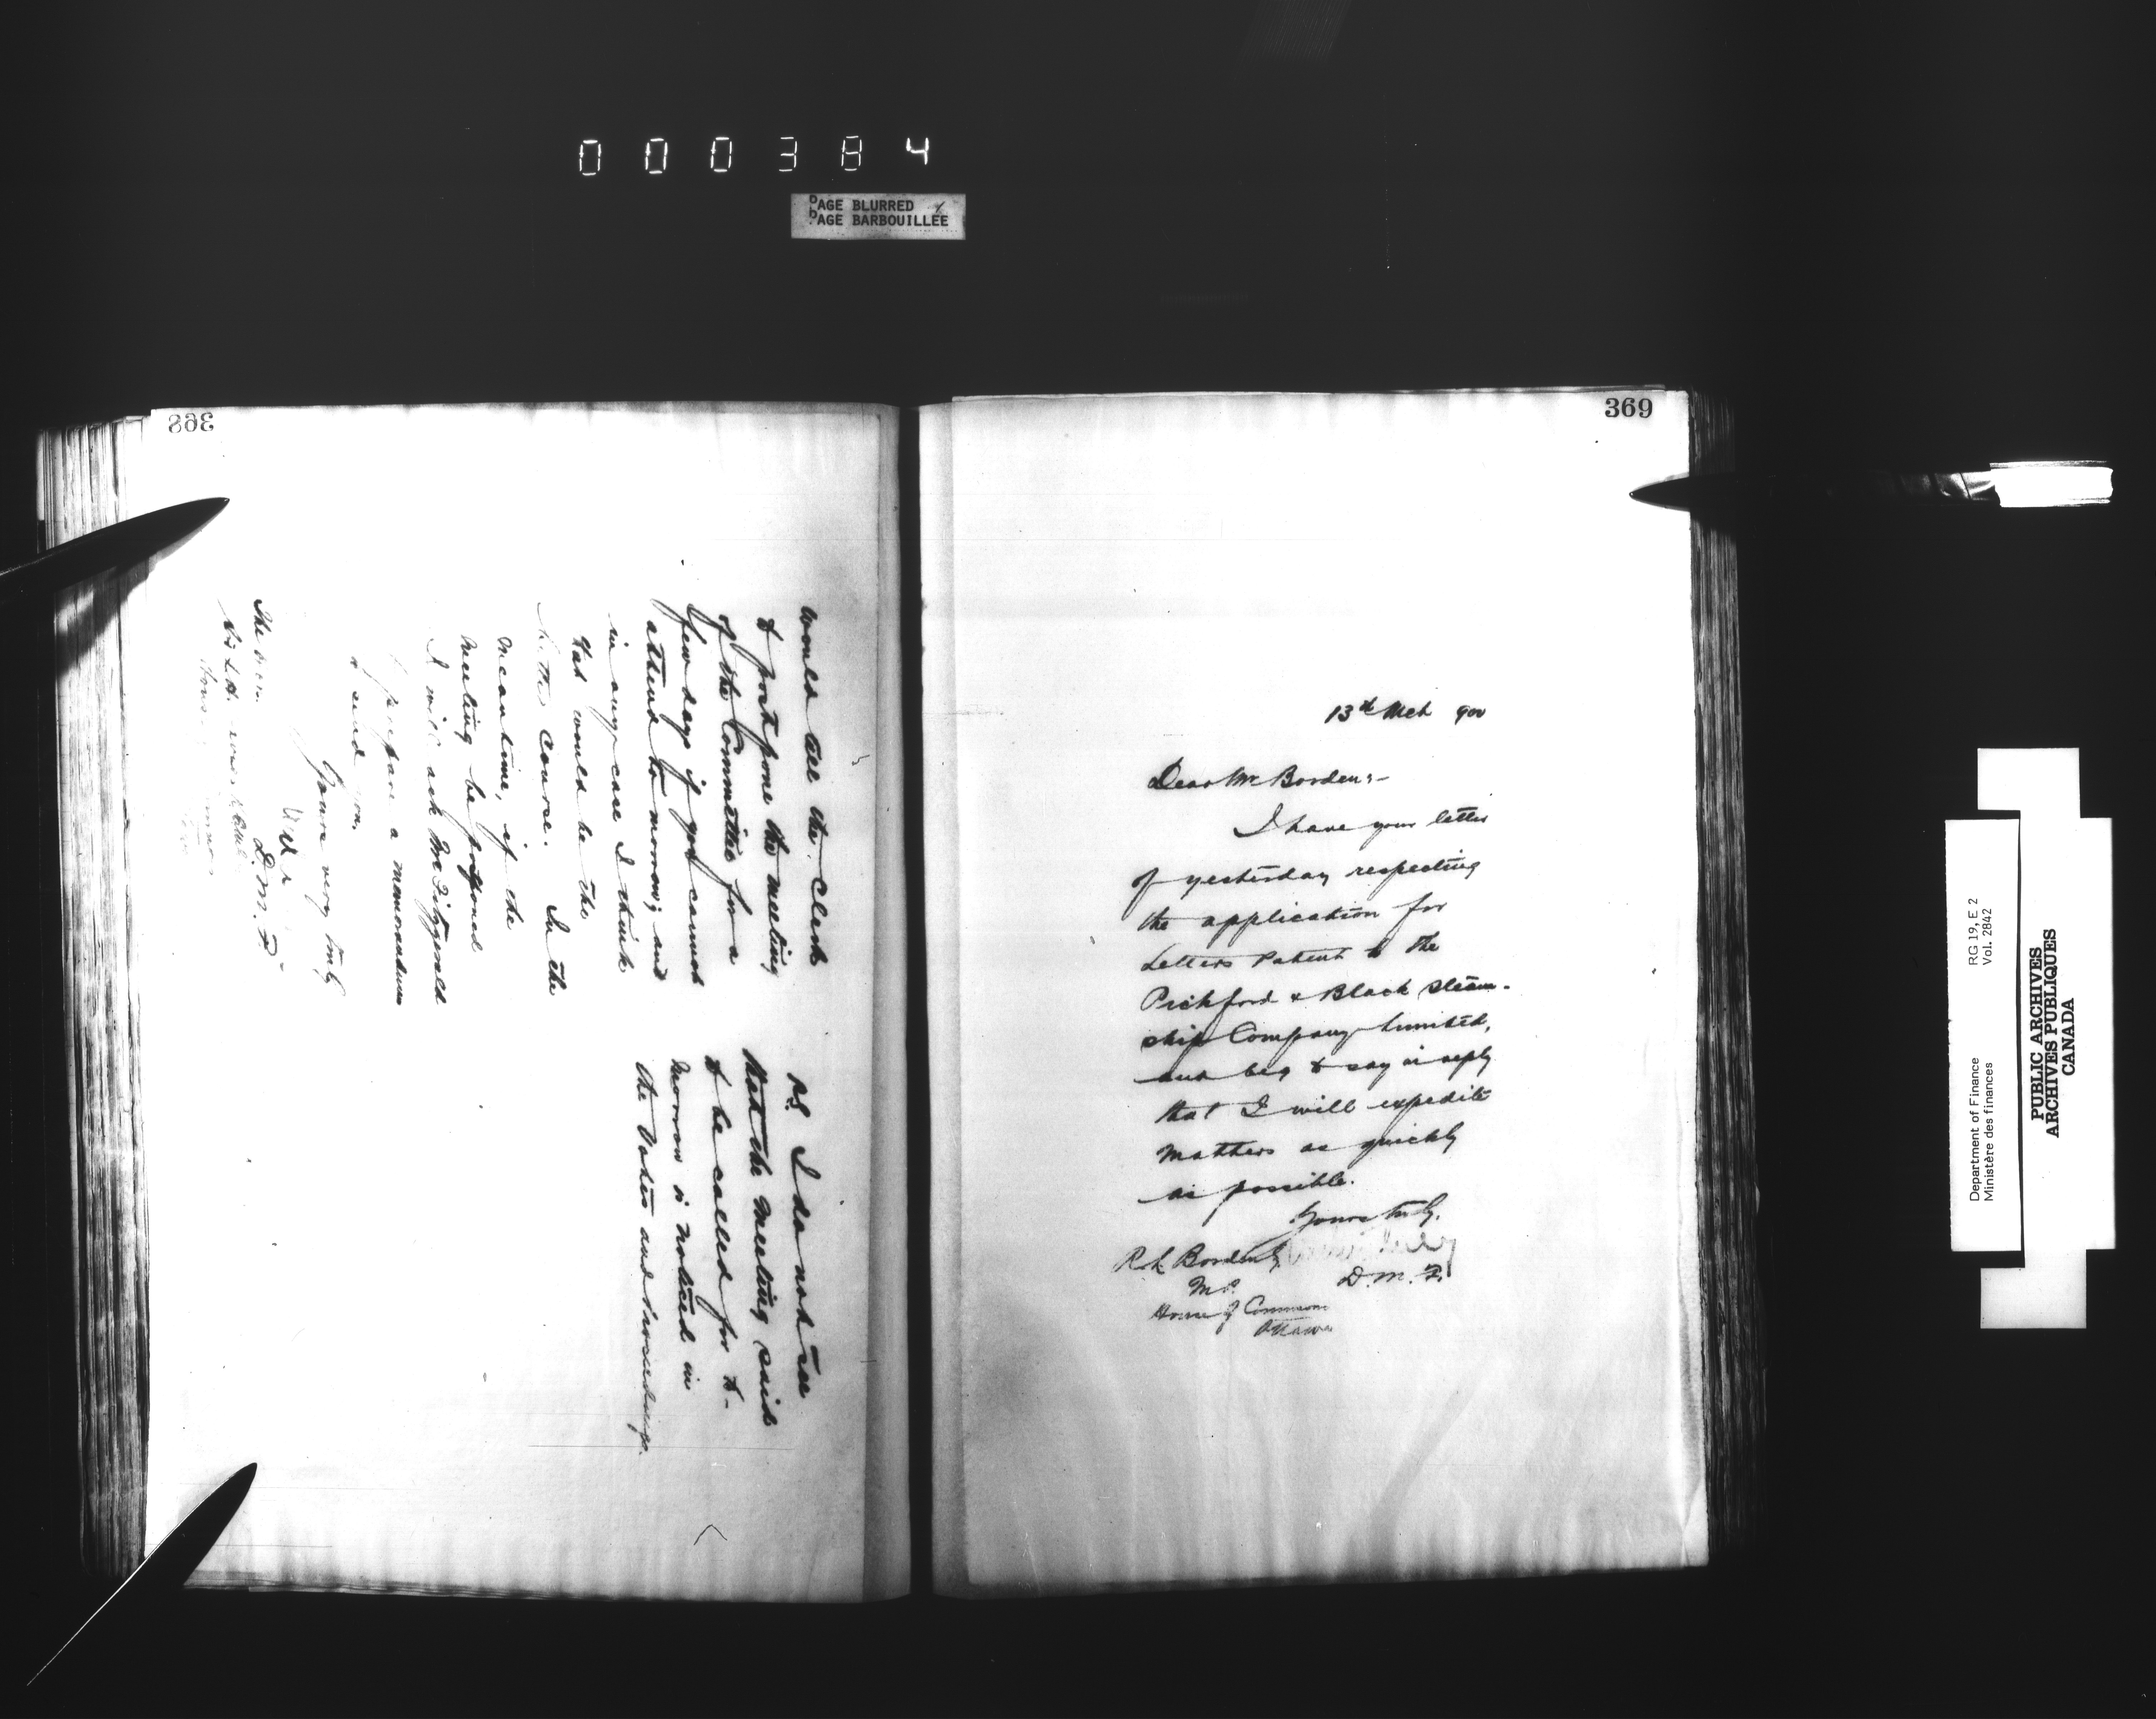 000384
PAGE BLURRED
PAGE BARBOUILLEE
368
would tell the Clerk
to postpone the meeting
of the Committee for a
few days if you cannot
attend to morrow; and
in any case I think
that would be the
better course. In the
meantime, if the
meeting be postponed
I will ask Mr Fitzgerald
to prepare a memorandum
& send you.
Yours very truly
D.M.F.
The Hon.
Sir L.H.
P.S. I do not see
that the meeting said
to be called for to-
morrow is noticed in
the Votes and Proceedings.
369
13th Mch 900
Dear Mr Borden:-
I have your letter
of yesterday respecting
the application for
Letters Patent to the
Pickford & Black Steam-
ship Company Limited,
and beg to say in reply
that I will expedite
matters as quickly
as possible.
Yours truly.
D.M.F.
R.L. Borden Esq
M.P.
House of Commons
Ottawa
Department of Finance RG 19, E. 2
Ministère des finances Vol. 2842
PUBLIC ARCHIVES
ARCHIVES PUBLIQUES
CANADA